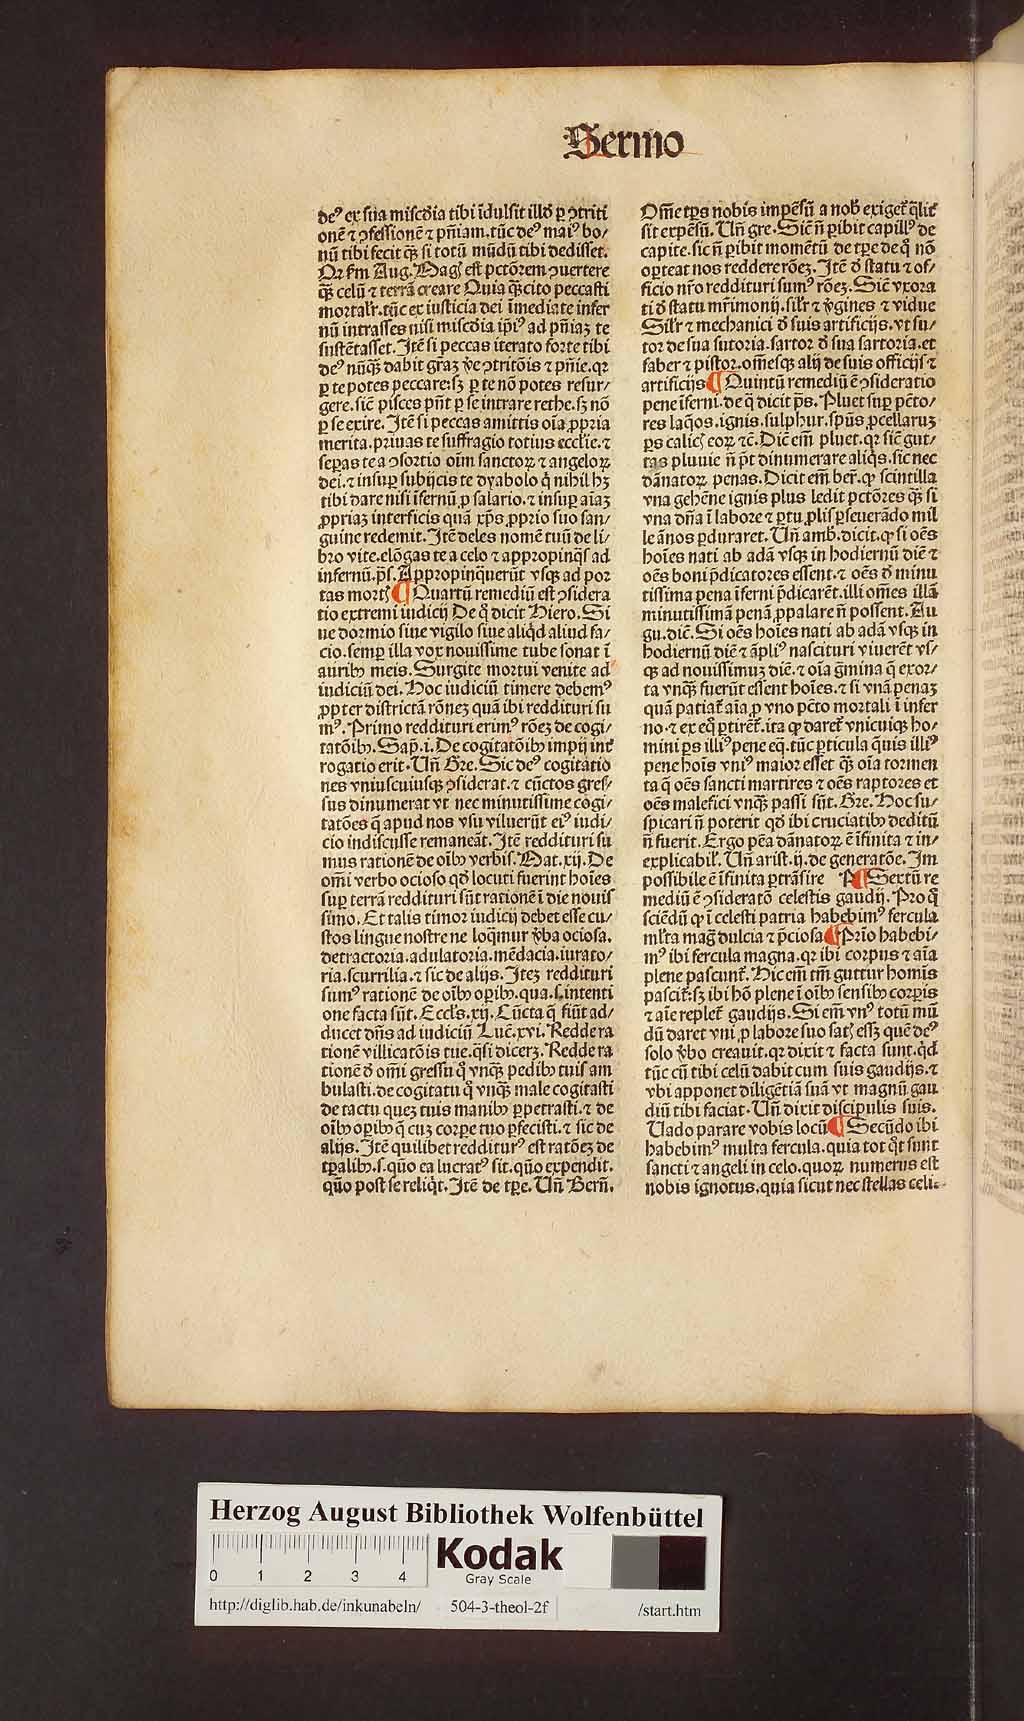 Sermo
deꝰ ex sua misc̄dia tibi īdulsit illd̄ ꝑ ꝯtriti
onē ⁊ ꝯfessionē ⁊ pn̄iam. tūc deꝰ maiꝰ bo/
nū tibi fecit qꝫ̄ si totū mūdū tibi dedisset.
Qꝛ ẜm Aug. Magꝭ est pctōrem ꝯuertere
qꝫ̄ celū ⁊ terrā creare Quia qꝫ̄cito peccasti
mortalr̄. tūc ex iusticia dei īmediate infer
nū intrasses nisi misc̄dia ip̄iꝰ ad pn̄iaꝫ te
sustētasset. Itē si peccas iterato forte tibi
deꝰ nūqꝫ̄ dabit graꝫ v̄e ꝯtritōis ⁊ pn̄ie. qꝛ
ꝑ te potes peccare: sꝫ ꝑ te nō potes resur/
gere. sic̄ pisces pn̄t ꝑ se intrare rethe. sꝫ nō
ꝑ se exire. Itē si peccas amittis oīa ꝓpria
merita. priuas te suffragio totius eccl'ie. ⁊
seꝑas te a ꝯsortio oīm sanctoꝝ ⁊ angeloꝝ
dei. ⁊ insuꝑ subijcis te dyabolo q̄ nihil hꝫ
tibi dare nisi īfernū ꝓ salario. ⁊ insuꝑ aīaꝫ
ꝓpriaꝫ interficis quā xp̄s ꝓprio suo san/
guine redemit. Itē deles nomē tuū de li/
bro vite. elōgas te a celo ⁊ appropinqͥs ad
infernū. p̄s. Appropinq̄uerūt vsqꝫ ad por
tas mortꝭ ¶ Quartū remediū est ꝯsidera
tio extremi iudicij De q̄ dicit Hiero. Si
ue dormio siue vigilo siue aliqͥd aliud fa/
cio. semꝑ illa vox nouissime tube sonat ī
auribꝫ meis. Surgite mortui venite ad
iudiciū dei. Hoc iudiciū timere debemꝰ
ꝓpter districtā rōneꝫ quā ibi reddituri su
mꝰ. Primo reddituri erimꝰ rōeꝫ de cogi/
tatōibꝫ. Sap̄. i. De cogitatōibꝫ impij int̄
rogatio erit. Un̄ Gre. Sic deꝰ cogitatio
nes vniuscuiusqꝫ ꝯsiderat. ⁊ cūctos gres/
sus dinumerat vt nec minutissime cogi/
tatōes q̄ apud nos vsu viluerūt eiꝰ iudi/
cio indiscusse remaneāt. Itē reddituri su
mus rationē de oībꝫ verbis. Mat. xij. De
om̄i verbo ocioso qd̄ locuti fuerint hoīes
suꝑ terrā reddituri sūt rationē ī die nouis
simo. Et talis timor iudicij debet esse cu/
stos lingue nostre ne loqͣmur v̄ba ociosa.
detractoria. adulatoria. mēdacia. iurato/
ria. scurrilia. ⁊ sic de alijs. Iteꝫ reddituri
sumꝰ rationē de oībꝫ oꝑibꝫ. qua. s. intenti
one facta sūt. Eccls. xij. Cūcta q̄ fiūt ad/
ducet dn̄s ad iudiciū Luc̄. xvi. Redde ra
tionē villicatōis tue. qͣsi dicerꝫ. Redde ra
tionē d̄ om̄i gressu q̄ vnqꝫ̄ pedibꝫ tuis am
bulasti. de cogitatu q̄ vnqꝫ̄ male cogitasti
de tactu queꝫ tuis manibꝫ ꝑpetrasti. ⁊ de
oībꝫ oꝑibꝫ q̄ cuꝫ corpe tuo ꝑfecisti. ⁊ sic de
alijs. Itē quilibet redditurꝰ est ratōeꝫ de
tꝑalibꝫ. s. qūo ea lucratꝰ sit. qūo expendit.
qūo post se reliqͥt. Itē de tꝑe. Un̄ Bern̄.
Om̄e tꝑs nobis impēsū a nob̄ exiget̄ qͣlit̄
sit expēsū. Un̄ gre. Sic̄ n̄ ꝑibit capillꝰ de
capite. sic n̄ ꝑibit momētū de tꝑe de q̄ nō
oꝑteat nos reddere rōeꝫ. Itē d̄ statu ⁊ of/
ficio nr̄o reddituri sumꝰ rōeꝫ. Sic̄ vxora
ti d̄ statu mr̄imonij. silr̄ ⁊ v̄gines ⁊ vidue
Silr̄ ⁊ mechanici d̄ suis artificijs. vt su/
tor de sua sutoria. sartor d̄ sua sartoria. et
faber ⁊ pistor. om̄esqꝫ alij de suis officijs ⁊
artificijs ¶ Quintū remediū ē ꝯsideratio
pene īferni. de q̄ dicit p̄s. Pluet suꝑ pctō/
res laqͦos. ignis. sulphur. sp̄us ꝓcellaruꝫ
ꝑs calicꝭ eoꝝ ⁊c̄. Dic̄ em̄ pluet. qꝛ sic̄ gut/
tas pluuie n̄ p̄t dinumerare aliqͥs. sic nec
dānatoꝝ penas. Dicit em̄ ber̄. ꝙ scintilla
vna gehēne ignis plus ledit pctōres qꝫ̄ si
vna dn̄a ī labore ⁊ ꝑtu ꝓlis ꝑseuerādo mil
le ānos ꝑduraret. Un̄ amb̄. dicit. ꝙ si oēs
hoīes nati ab adā vsqꝫ in hodiernū diē ⁊
oēs boni p̄dicatores essent. ⁊ oēs d̄ minu
tissima pena īferni p̄dicarēt. illi om̄es illā
minutissimā penā ꝓpalare n̄ possent. Au
gu. dic̄. Si oēs hoīes nati ab adā vsqꝫ in
hodiernū diē ⁊ āpliꝰ nascituri viuerēt vs/
qꝫ ad nouissimuꝫ diē. ⁊ oīa gͣmina q̄ exor/
ta vnqꝫ̄ fuerūt essent hoīes. ⁊ si vnā penaꝫ
quā patiat̄ aīa ꝓ vno pctō mortali ī infer
no. ⁊ ex eq̄ ꝑtiret̄. ita ꝙ daret̄ vnicuiqꝫ ho/
mini ꝑs illiꝰ pene eq̄. tūc ꝑticula qͣuis illiꝰ
pene hoīs vniꝰ maior esset qꝫ̄ oīa tormen
ta q̄ oēs sancti martires ⁊ oēs raptores et
oēs malefici vnqꝫ̄ passi sūt. Gre. Hoc su/
spicari n̄ poterit qd̄ ibi cruciatibꝫ deditū
n̄ fuerit. Ergo pēa dānatoꝝ ē īfinita ⁊ in/
explicabil'. Un̄ arist. ij. de generatōe. Im
possibile ē īfinita ꝑtrāsire ¶ Sextū re
mediū ē ꝯsideratō celestis gaudij. Pro qͦ
sciēdū ꝙ ī celesti patria habebimꝰ fercula
ml'ta maḡ dulcia ⁊ p̄ciosa ¶ Prīo habebi/
mꝰ ibi fercula magna. qꝛ ibi corpus ⁊ aīa
plene pascunt̄. Hic em̄ tm̄ guttur homīs
pascit̄. sꝫ ibi hō plene ī oībꝫ sensibꝫ corꝑis
⁊ aīe replet̄ gaudijs. Si em̄ vnꝰ totū mū
dū daret vni ꝓ labore suo satꝭ essꝫ quē deꝰ
solo v̄bo creauit. qꝛ dixit ⁊ facta sunt. qͣd
tūc cū tibi celū dabit cum suis gaudijs. ⁊
vbi apponet diligētiā suā vt magnū gau
diū tibi faciat. Un̄ dixit discipulis suis.
Uado parare vobis locū ¶ Secūdo ibi
habebimꝰ multa fercula. quia tot qͦt sunt
sancti ⁊ angeli in celo. quoꝝ numerus est
nobis ignotus. quia sicut nec stellas celi
Herzog August Bibliothek Wolfenbüttel
0 1 2 3 4
Kodak
Gray Scale
http://diglib.hab.de/inkunabeln/ 504-3-theol-2f /start.htm